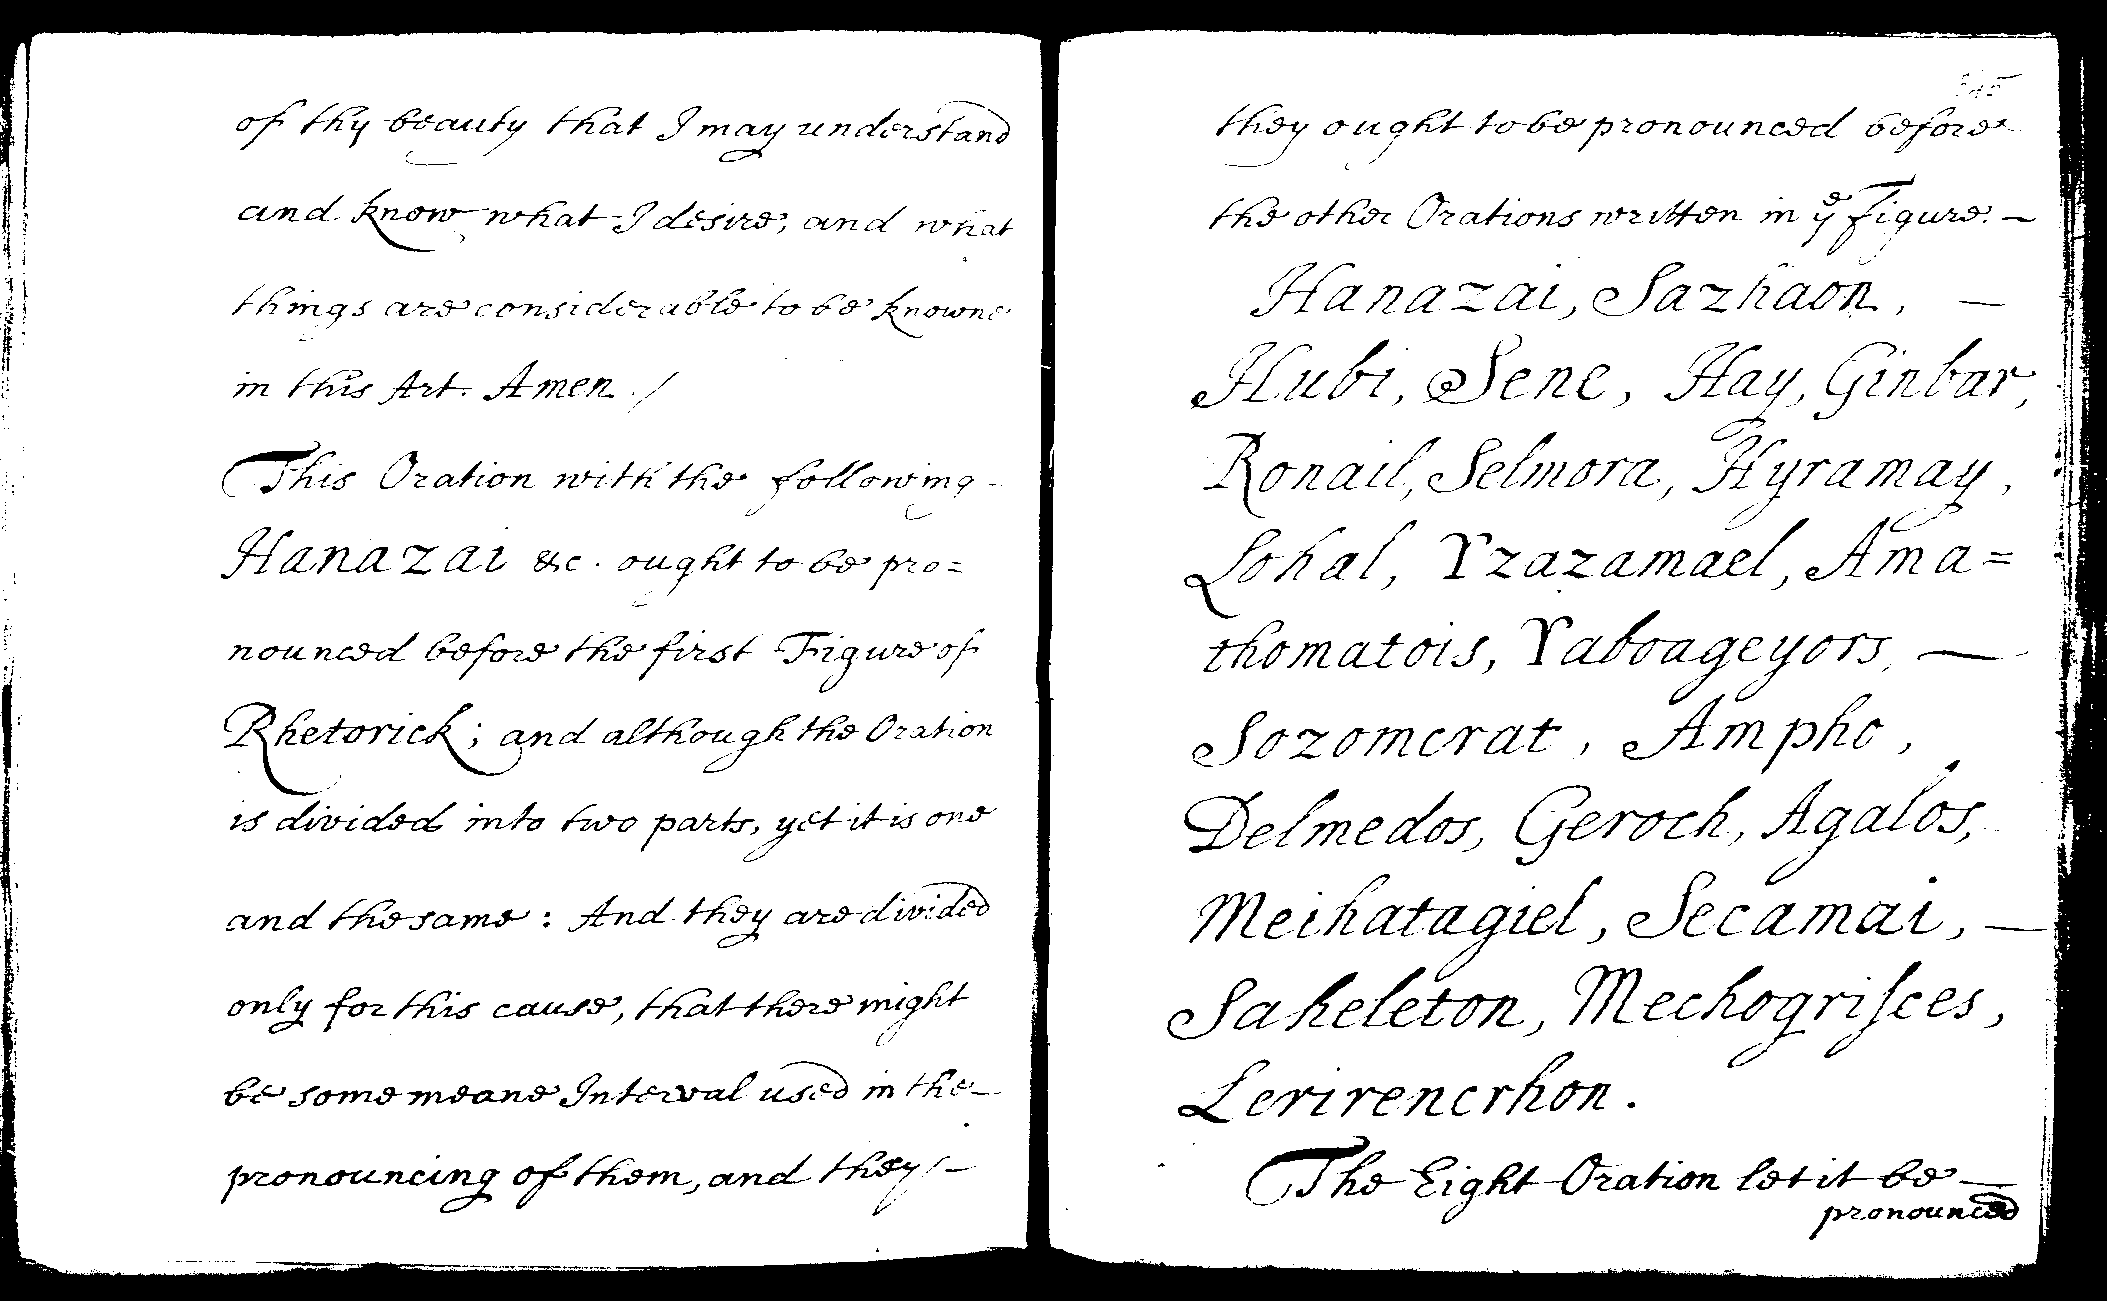 of thy beauty that I may understand
and know what I desire; and what
things are considerable to be knowne
in this Art. Amen ./
This Oration with the following -
Hanazai &c. ought to be pro=
nounced before the first Figure of
Rhetorick; and although the Oration
is divided into two parts, yet it is one
and the same: And they are divided
only for this cause, that there might
be some meane Interval used in the —
pronouncing of them, and they —
they ought to be pronounced before
the other Orations written in yͤ Figure. —
Hanazai, Sazhaon, —
Hubi, Sene, Hay, Ginbar,
Ronail, Selmora, Hyramay,
Lohal, Yzazamael, Ama=
thomatois, Yaboageyors, —
Sozomcrat, Ampho,
Delmedos, Geroch, Agalos,
Meihatagiel, Secamai, —
Saheleton, Mechogriſces,
Lerirencrhon.
The Eight Oration let it be —
pronounced